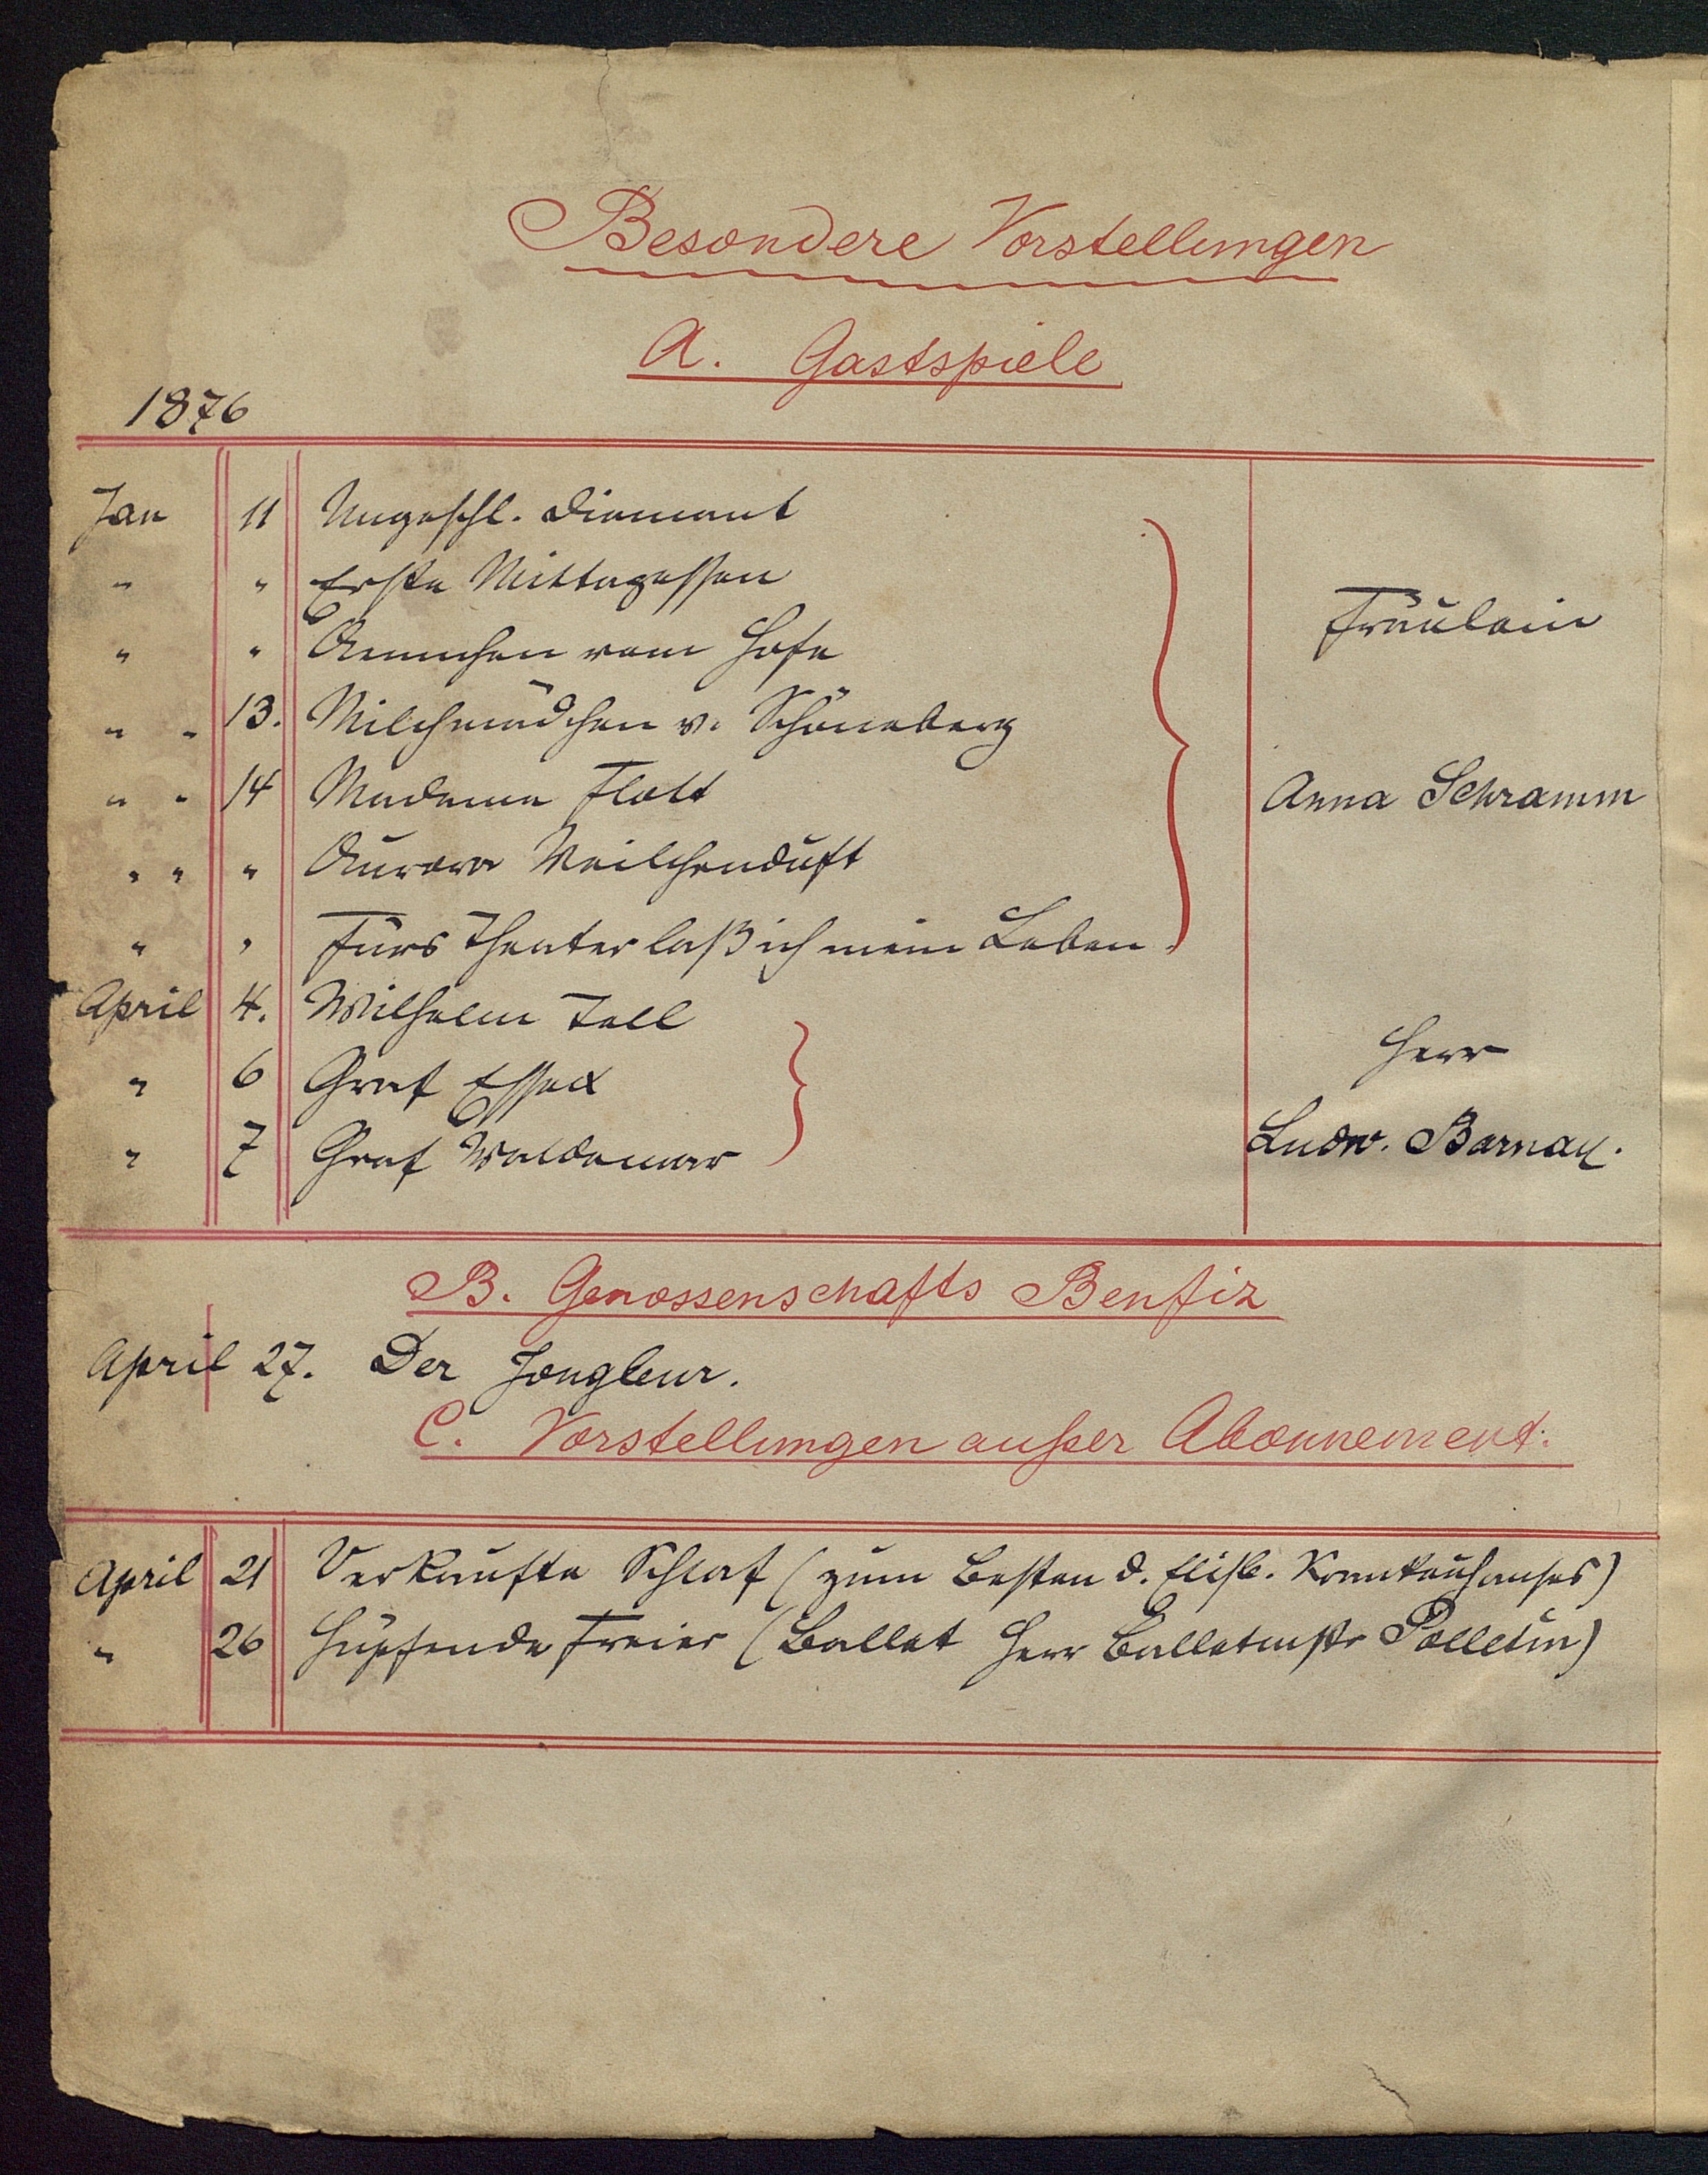 Besondere Vorstellungen
A. Gastspiele
1876
Jan 11 Ungeschl. Diamant
" " Erste Mittagessen
" " Aennchen vom Hofe
Fräulein
" " 13. Milchmädchen v. Schöneberg
" " 14 Madame Flott
Anna Schramm
" " " Aurora Veilchenduft
" " Fürs Theater laß ich mein Leben.
April 4. Wilhelm Tell
Herr
" 6 Graf Essex
" 7 Graf Waldemar
Ludw. Barnay.
B. Genossenschafts Benfiz
April 27. Der Jongleur.
C. Vorstellungen außer Abonnement.
April 21 Verkaufte Schlaf (zum Besten d. Elisb. Krankenhauses)
" 26 Hüpfende Freier (Ballet Herr Balletmstr Polletin)